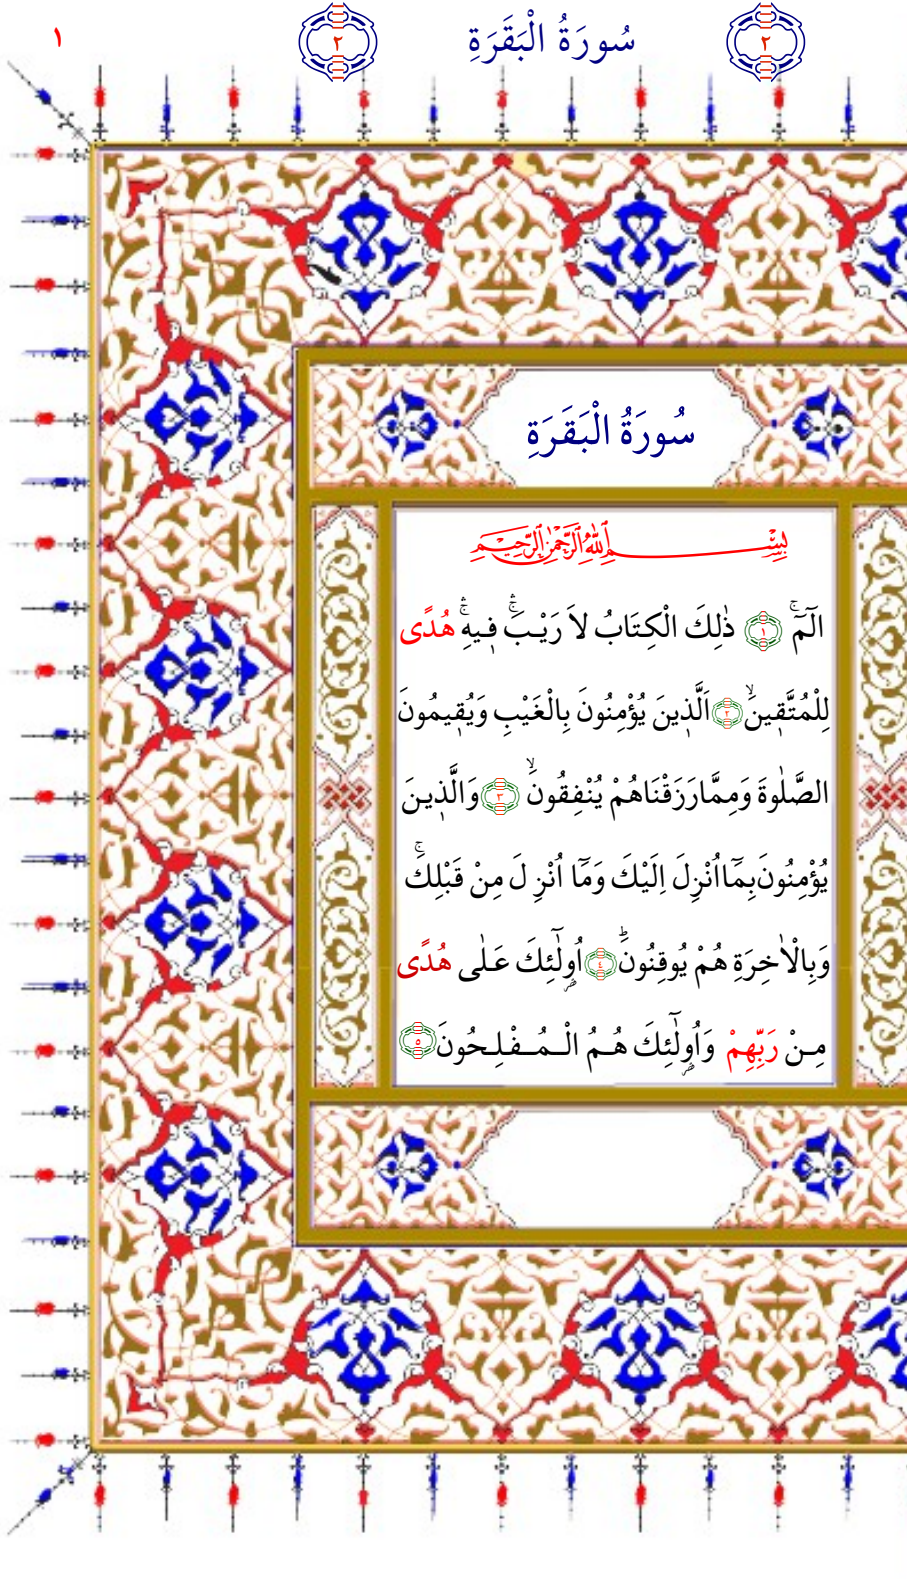 ٢ سُورَةُ الْبَقَرَةِ ٢ ١
سُورَةُ الْبَقَرَةِ
بِسْمِ اللّٰهِ الرَّحْمٰنِ الرَّحِيمِ
الٓمٓ ۚ ﴿١﴾ ذٰلِكَ الْكِتَابُ لاَ رَيْبَ ۛۚ ف۪يهِ ۛۚ هُدًى
لِلْمُتَّق۪ينَ ۙ ﴿٢﴾ اَلَّذ۪ينَ يُؤْمِنُونَ بِالْغَيْبِ وَيُق۪يمُونَ
الصَّلٰوةَ وَمِمَّا رَزَقْنَاهُمْ يُنْفِقُونَ ۙ ﴿٣﴾ وَالَّذ۪ينَ
يُؤْمِنُونَ بِمَٓا اُنْزِلَ اِلَيْكَ وَمَٓا اُنْزِلَ مِنْ قَبْلِكَ ۚ
وَبِالْاٰخِرَةِ هُمْ يُوقِنُونَ ۜ ﴿٤﴾ اُو۬لٰٓئِكَ عَلٰى هُدًى
مِنْ رَبِّهِمْ وَاُو۬لٰٓئِكَ هُمُ الْمُفْلِحُونَ ﴿٥﴾